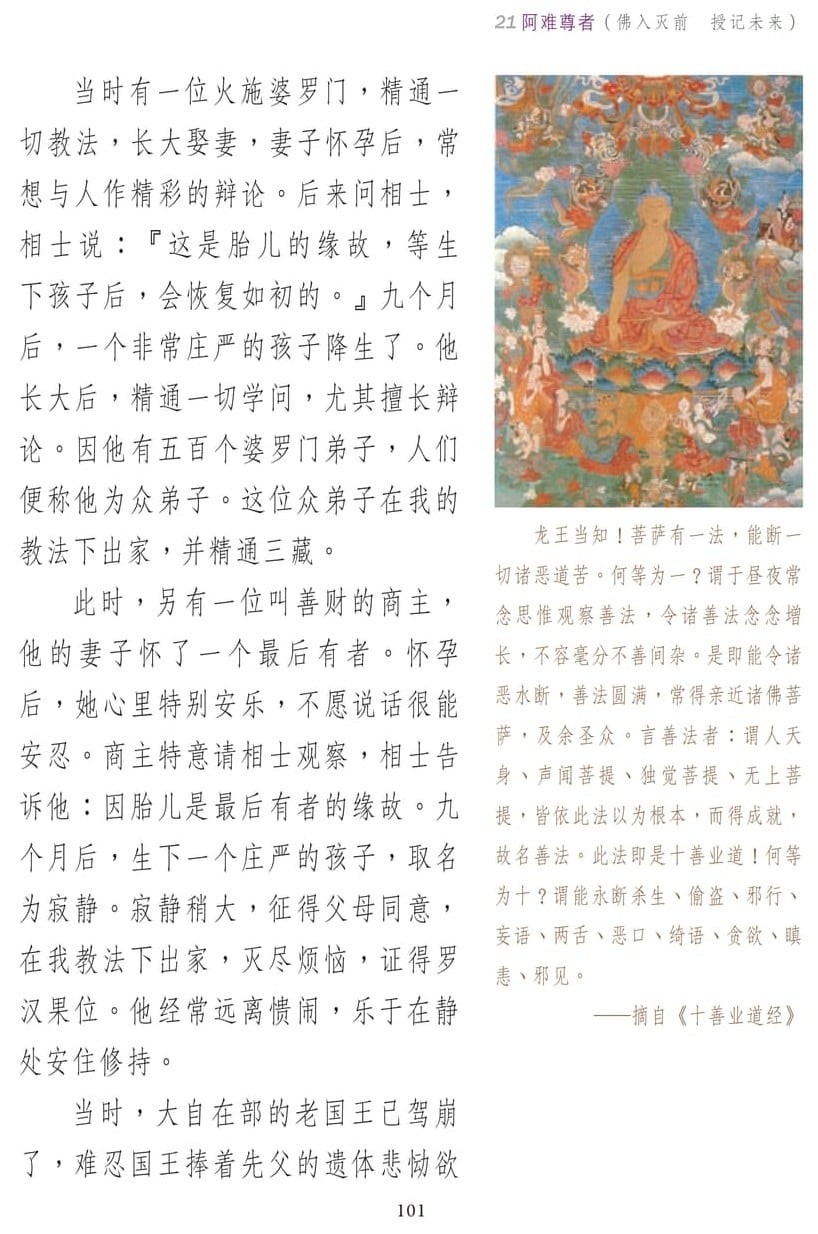 21 阿难尊者（佛入灭前　授记未来）
当时有一位火施婆罗门，精通一
切教法，长大娶妻，妻子怀孕后，常
想与人作精彩的辩论。后来问相士，
相士说：『这是胎儿的缘故，等生
下孩子后，会恢复如初的。』九个月
后，一个非常庄严的孩子降生了。他
长大后，精通一切学问，尤其擅长辩
论。因他有五百个婆罗门弟子，人们
便称他为众弟子。这位众弟子在我的
教法下出家，并精通三藏。
此时，另有一位叫善财的商主，
他的妻子怀了一个最后有者。怀孕
后，她心里特别安乐，不愿说话很能
安忍。商主特意请相士观察，相士告
诉他：因胎儿是最后有者的缘故。九
个月后，生下一个庄严的孩子，取名
为寂静。寂静稍大，征得父母同意，
在我教法下出家，灭尽烦恼，证得罗
汉果位。他经常远离愦闹，乐于在静
处安住修持。
当时，大自在部的老国王已驾崩
了，难忍国王捧着先父的遗体悲恸欲
龙王当知！菩萨有一法，能断一
切诸恶道苦。何等为一？谓于昼夜常
念思惟观察善法，令诸善法念念增
长，不容毫分不善间杂。是即能令诸
恶永断，善法圆满，常得亲近诸佛菩
萨，及余圣众。言善法者：谓人天
身、声闻菩提、独觉菩提、无上菩
提，皆依此法以为根本，而得成就，
故名善法。此法即是十善业道！何等
为十？谓能永断杀生、偷盗、邪行、
妄语、两舌、恶口、绮语、贪欲、瞋
恚、邪见。
——摘自《十善业道经》
101